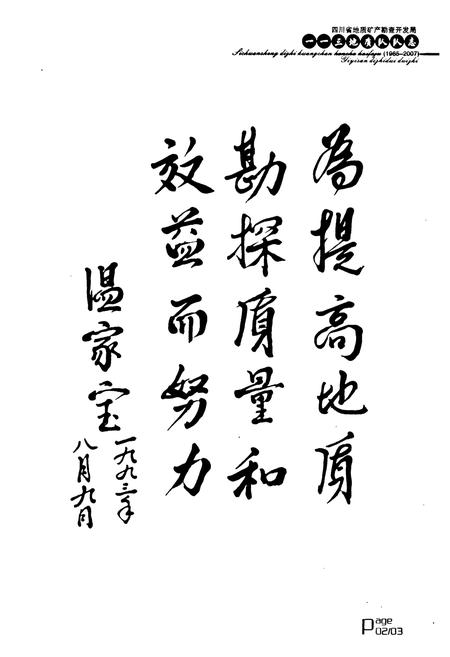 四川省地质矿产勘查开发局
一一三地质队队志
Sichuansheng dizhi kuangchan kancha kaifaju (1965-2007)
Yiyisan dizhidui duizhi
为提高地质
勘探质量和
效益而努力
温家宝
一九九三年
八月九日
Page
02/03